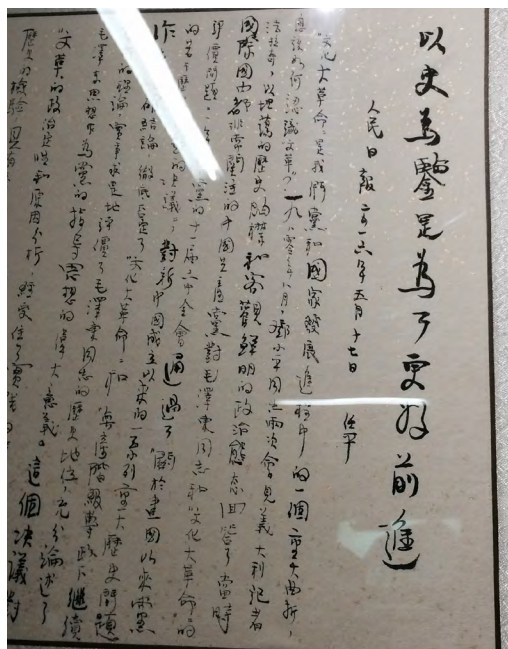 以史為鑒是為了更好前進
人民日報二〇一六年五月十七日 任平
"文化大革命"是我們黨和國家發展進程中的一個重大曲折,
應該如何認識"文革"?一九八零年八月,鄧小平同志兩次會見義大利記者
法拉奇,以坦蕩的歷史胸襟和客觀鮮明的政治態度回答了當時
國際國內都非常關注的中國共產黨對毛澤東同志和"文化大革命"的
評價問題。
黨的十一屆六中全會通過了《關於建國以來黨
的若干歷史 的決議》,對新中國成立以來的一系列重大歷史問題
作 結論,徹底否定了"文化大革命"和"無產階級專政下繼續
的理論,實事求是地評價了毛澤東同志的歷史地位,充分論述了
毛澤東思想作為黨的指導思想的偉大意義。這個決議對
"文革"的政治定性和原因分析 經受住了實踐的
歷史的檢驗